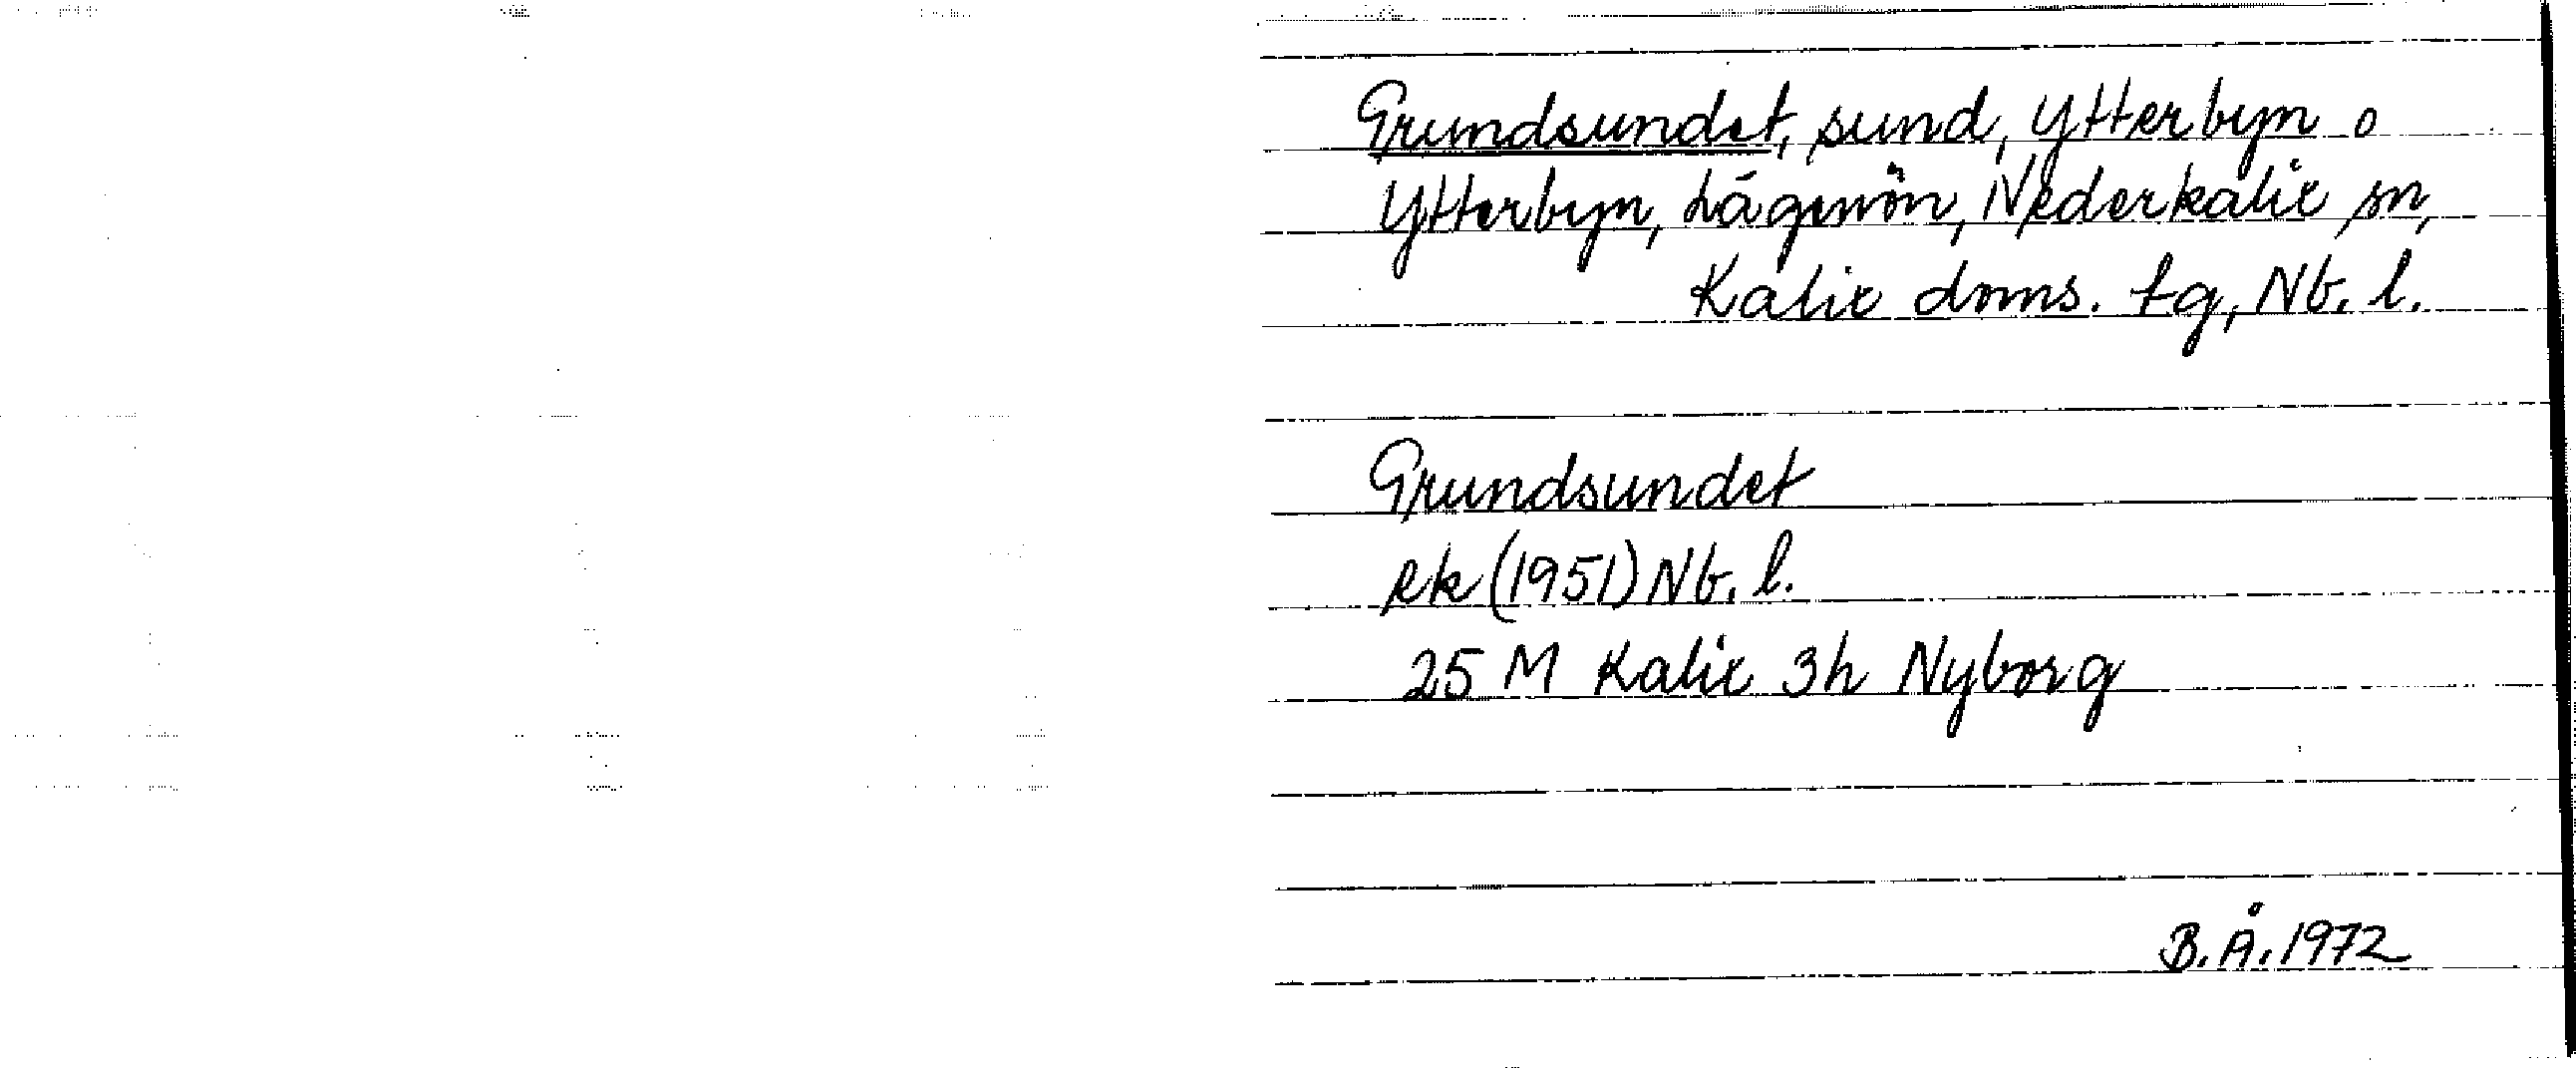 Grundsundet, sund, Ytterbyn o
Ytterbyn, Lågenön, Nederkalix sn,
Kalix doms. tg, Nb. l.
Grundsundet
Ek (1951) Nb. l.
25 M Kalix 3h Nyborg
B.Å. 1972